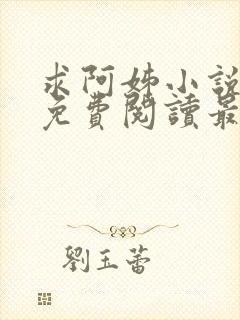 求阿姊小說
免費閱讀最
劉玉蕾